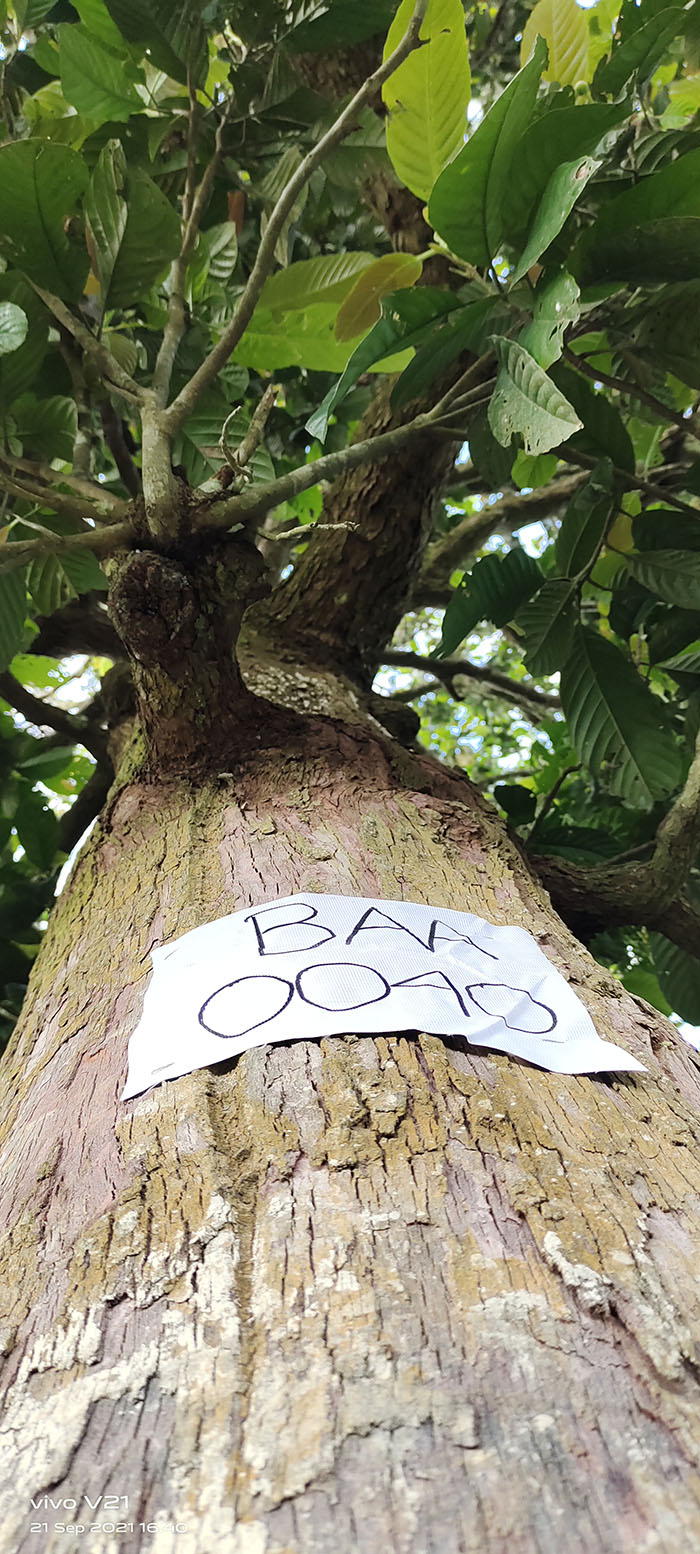 BAA
0040
vivo V21
21 Sep 2021 16:40